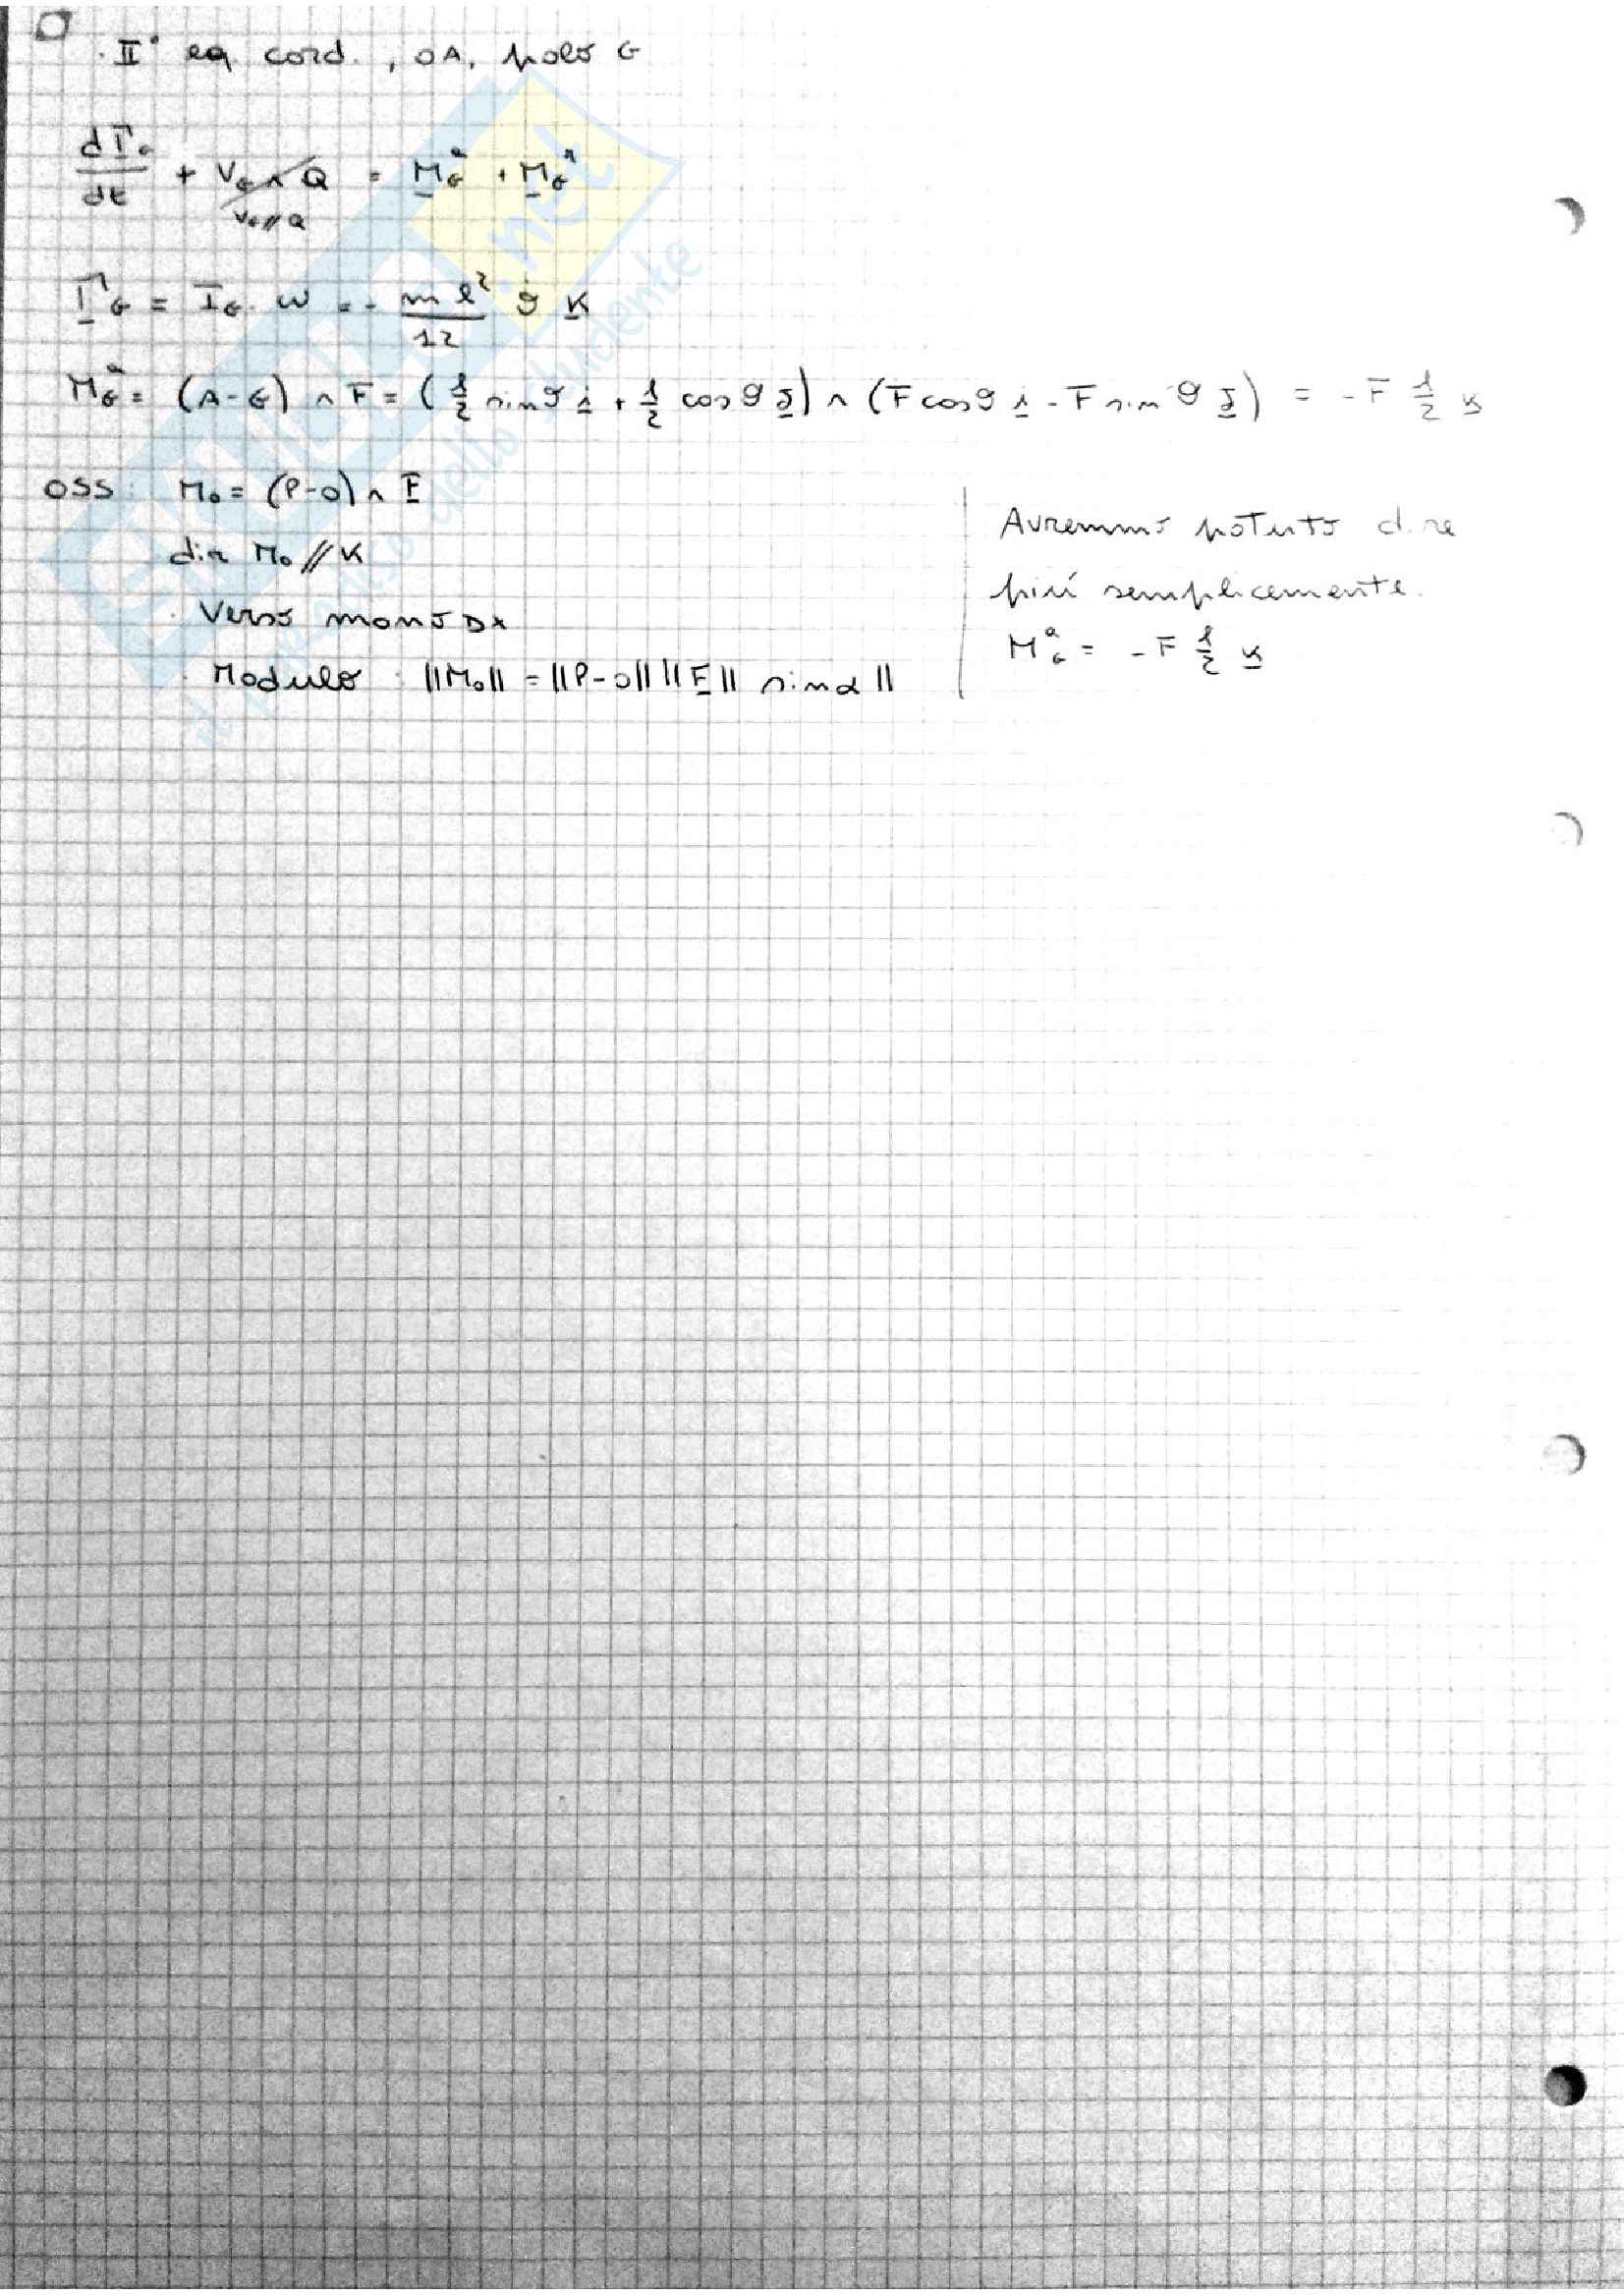 · II° eq cord. , OA, polo G
dΓ_G/dt + V_G ∧ Q = M_G^a + M_G^r
V_G // Q
Γ_G = I_G · ω = - m l²/12 ϑ̇ K
M_G^a = (A-G) ∧ F = (l/2 sinϑ i + l/2 cosϑ j) ∧ (F cosϑ i - F sinϑ j) = -F l/2 K
OSS: M_o = (P-O) ∧ F
dir M_o // K
· Verso mano Dx
· Modulo : ||M_o|| = ||P-O|| ||F|| sinα ||
Avremmo potuto dire
più semplicemente.
M_G^a = -F l/2 K
SKUOLA.net
il paradiso dello studente